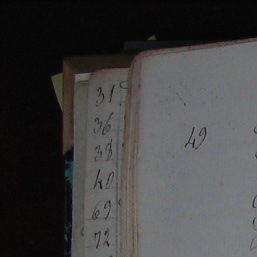 31
36
38
40
69
72
49